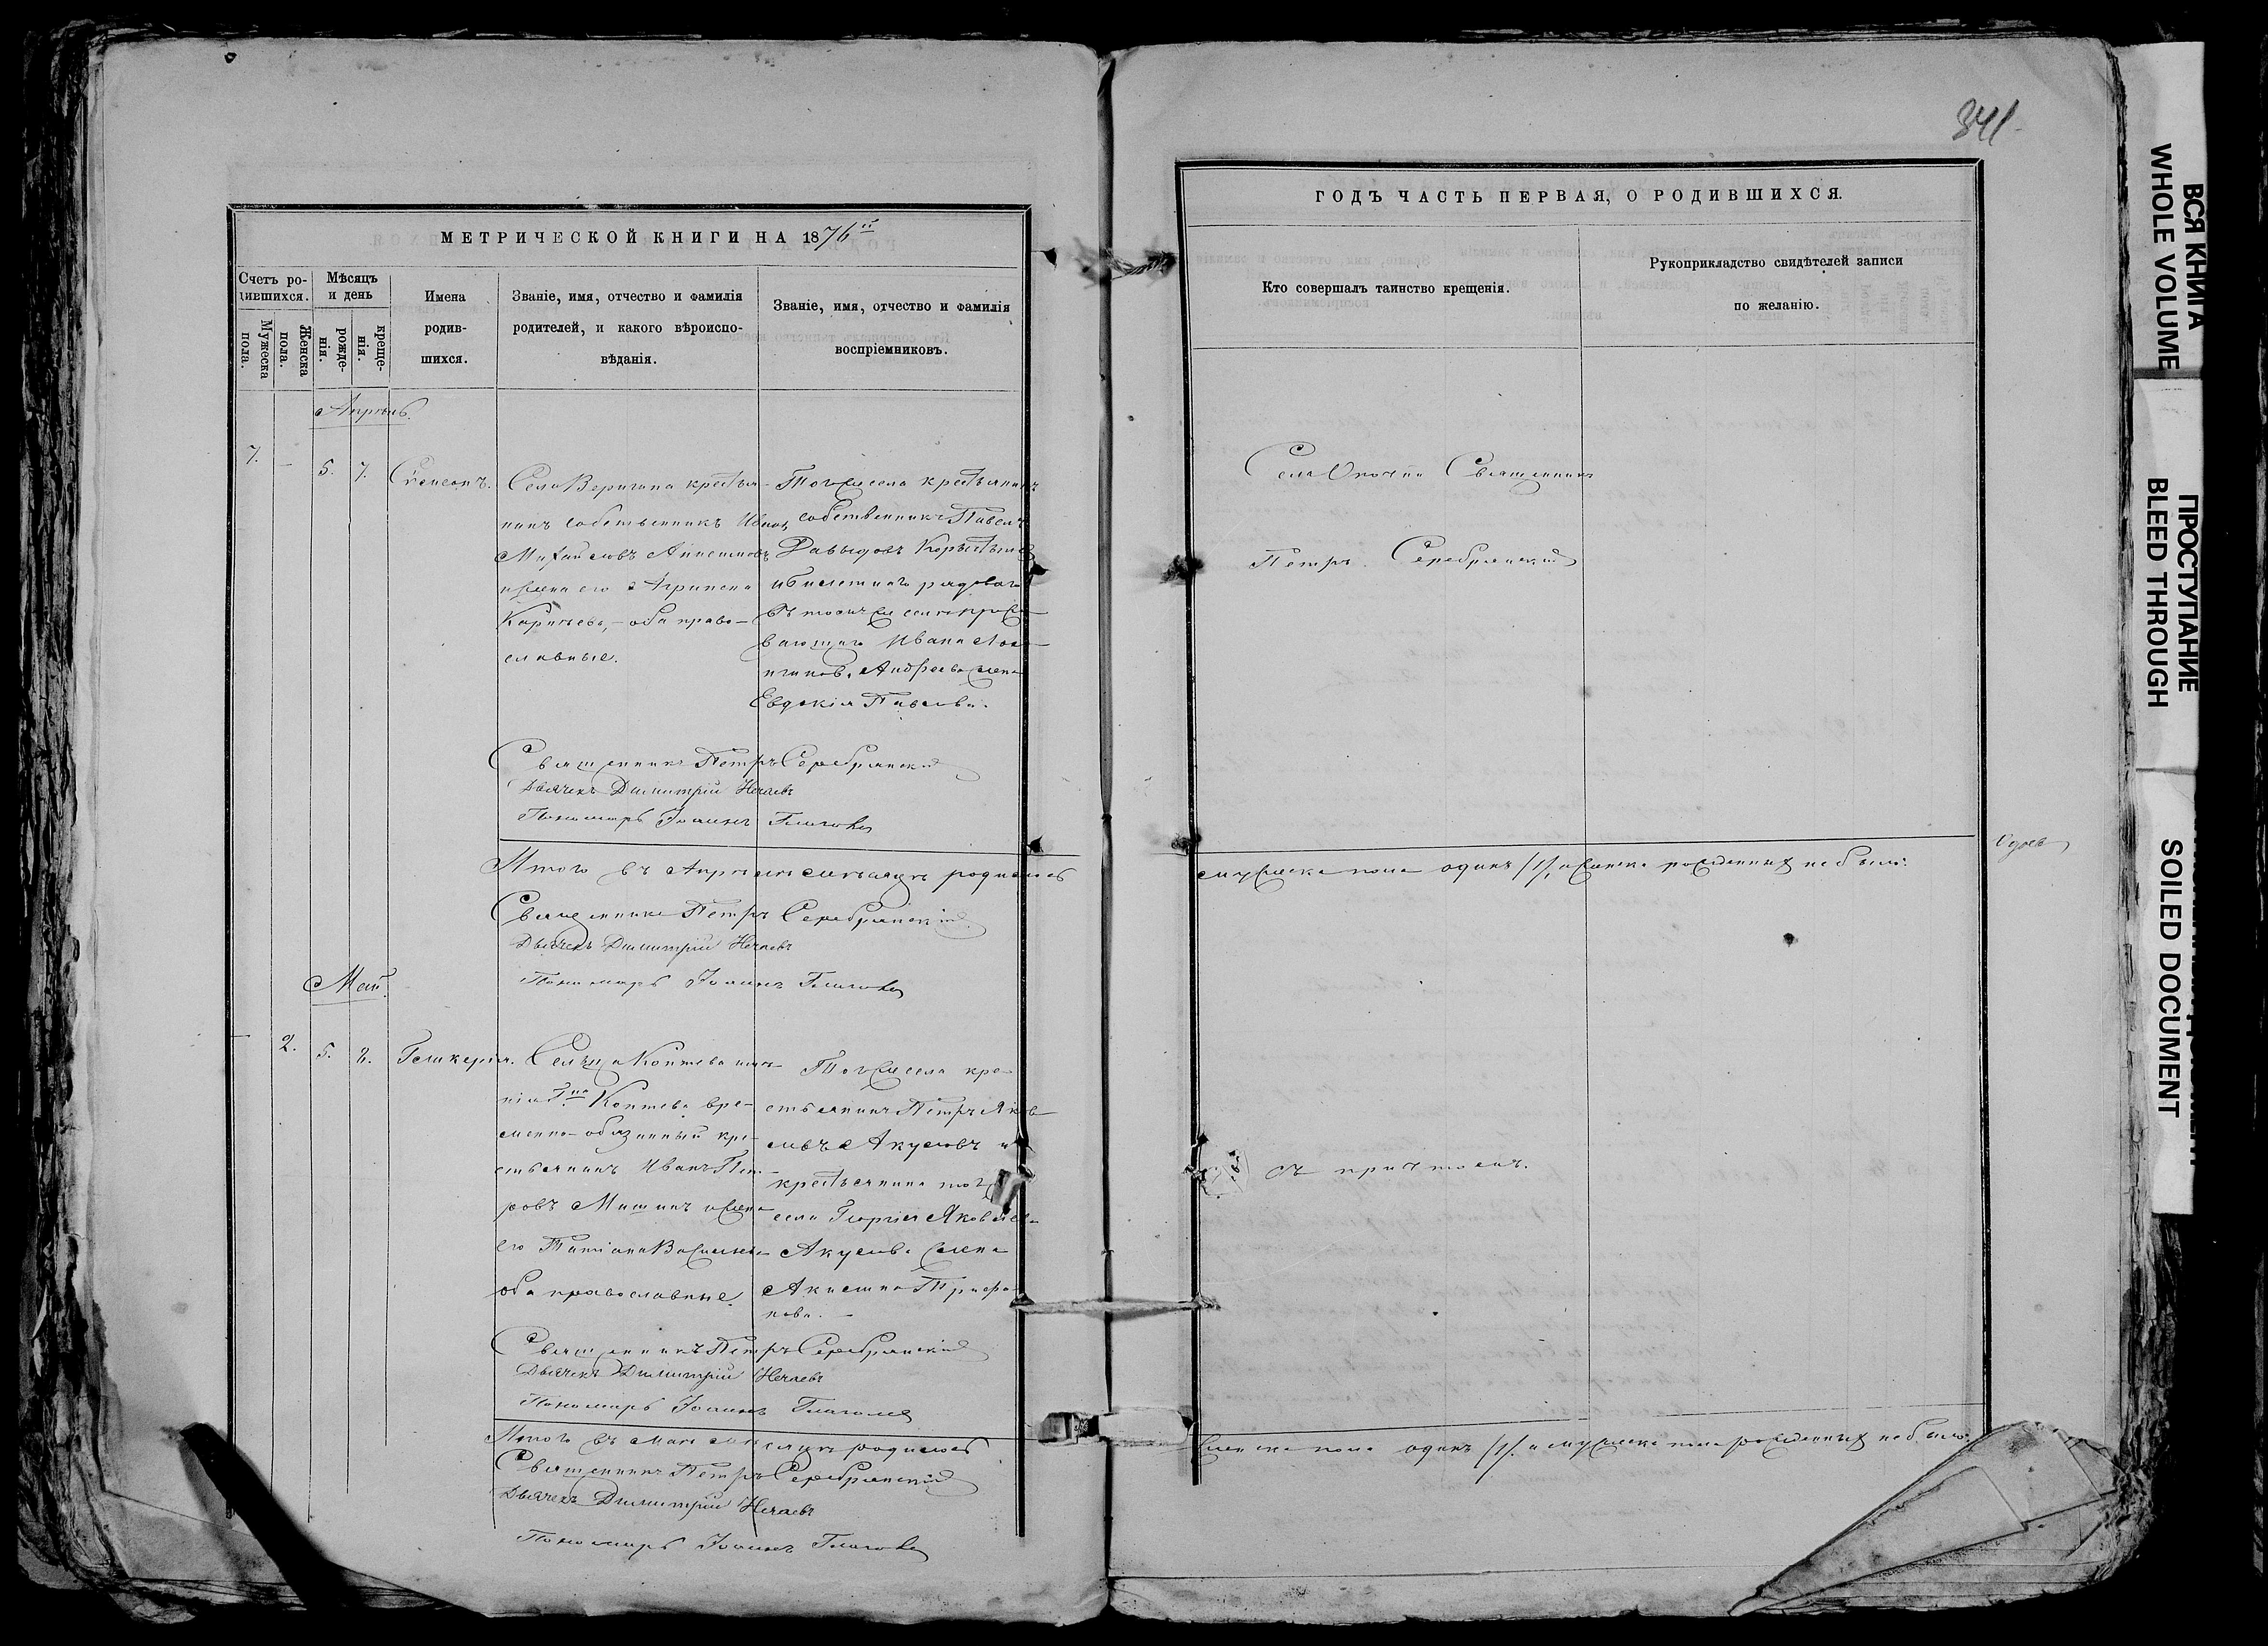 341
МЕТРИЧЕСКОЙ КНИГИ НА 1876й
ГОДЪ ЧАСТЬ ПЕРВАЯ, О РОДИВШИХСЯ.
Счетъ ро-
дившихся.
Мужеска
пола.
Женска
пола.
Мѣсяцъ
и день
рожде-
нія.
креще-
нія.
Имена
родив-
шихся.
Званіе, имя, отчество и фамилія
родителей, и какого вѣроиспо-
вѣданія.
Званіе, имя, отчество и фамилія
воспріемниковъ.
Кто совершалъ таинство крещенія.
Рукоприкладство свидѣтелей записи
по желанію.
Апрѣль.
7. - 5. 7. Сѵмеонъ.
Села крестья-
нинъ собственникъ Иванъ
Михайловъ
и жена его Агрипена
оба право-
славные.
Тогоже села крестьянинъ
собственникъ Павелъ
Давыдовъ
и билетнаго рядоваго
въ томже селѣ прожи-
вающаго Ивана
Андреева жена
Евдокія Павлова.
Села Священникъ
Петръ Серебрянскій
Священникъ Петръ Серебрянскій
Дьячекъ Димитрій Нечаевъ
Пономарь Іоаннъ
Итого въ Апрѣлѣ мѣсяцѣ родилось
мужеска пола одинъ /1/, а женска рожденныхъ не было.
Священникъ Петръ Серебрянскій
Дьячекъ Димитрій Нечаевъ
Пономарь Іоаннъ
Май.
- 2. 5. 8. Гликерія.
Сельца Коптева имѣ-
нія Гна Коптева вре-
менно-обязанный кре-
стьянинъ Иванъ Пет-
ровъ Мишинъ и жена
его Татіана Васильева
оба православные.
Тогоже села кре-
стьянинъ Петръ Яков-
левъ Акуловъ и
крестьянина тогоже
села Георгія Яковлева
Акулова жена
Акилина Трифо-
нова.
съ причтомъ.
Священникъ Петръ Серебрянскій
Дьячекъ Димитрій Нечаевъ
Пономарь Іоаннъ
Итого въ маѣ мѣсяцѣ родилось
женска пола одинъ /1/. а мужеска пола рожденныхъ не было.
Священникъ Петръ Серебрянскій
Дьячекъ Димитрій Нечаевъ
Пономарь Іоаннъ
ВСЯ КНИГА
WHOLE VOLUME
ПРОСТУПАНИЕ
BLEED THROUGH
SOILED DOCUMENT